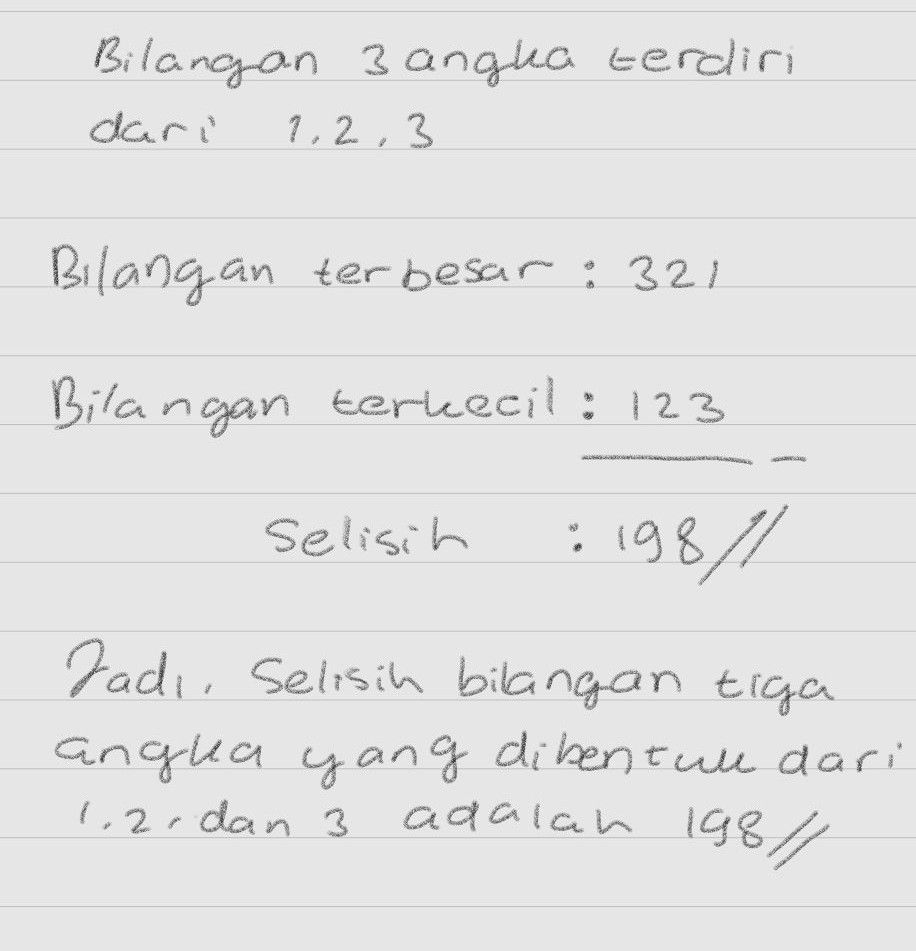 Bilangan 3 angka terdiri
dari 1, 2, 3
Bilangan terbesar : 321
Bilangan terkecil : 123
—
Selisih : 198 //
Jadi, Selisih bilangan tiga
angka yang dibentuk dari
1, 2, dan 3 adalah 198 //